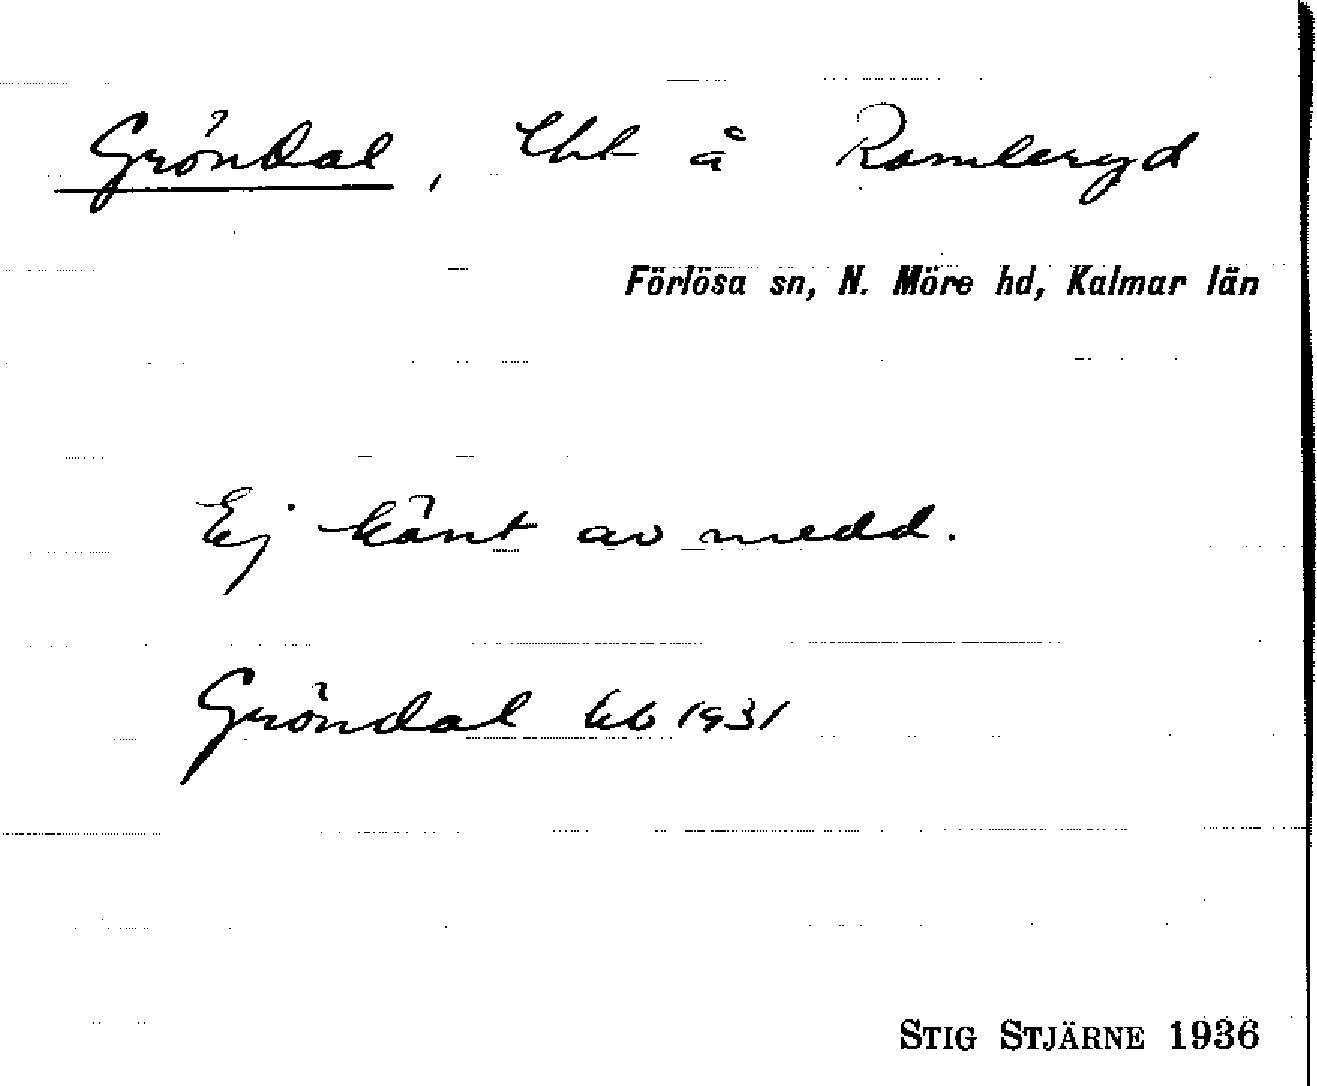 Gröndal, lht å Ramleryd
Förlösa sn, N. Möre hd, Kalmar län
Ej känt av medd.
Gröndal 1931
STIG STJÄRNE 1936